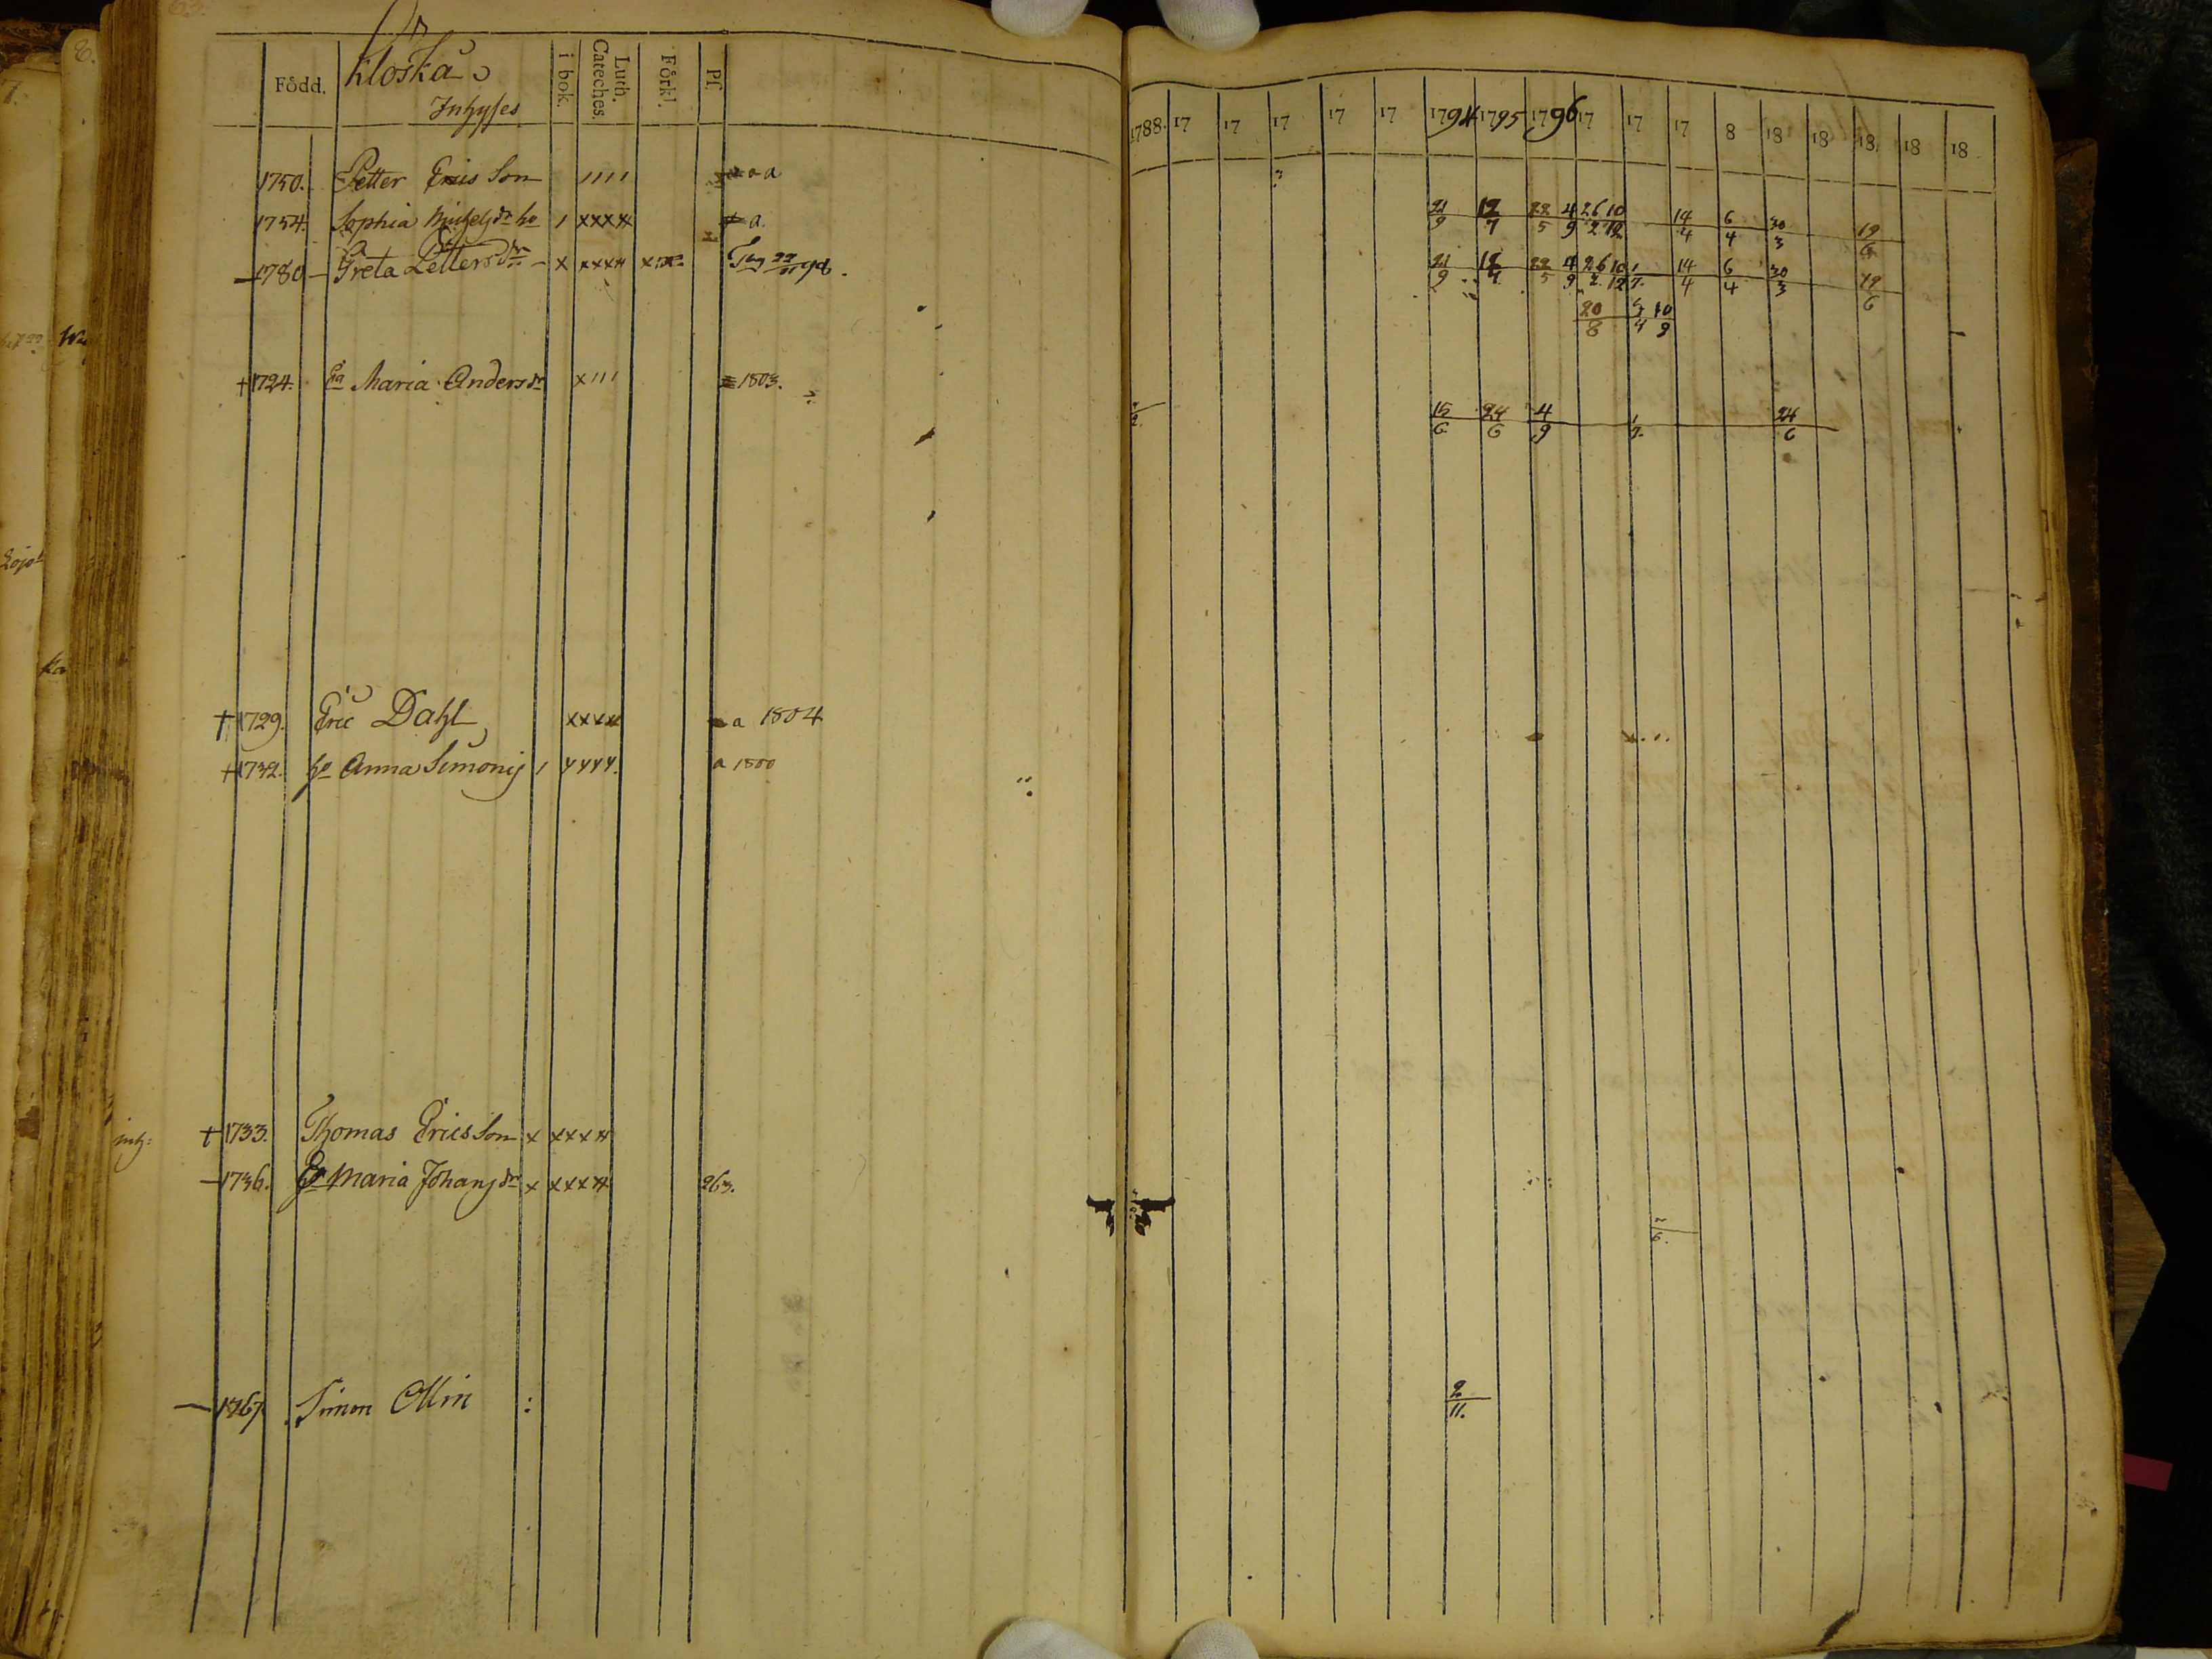 Född. Kloska i bok. Luth. Cateches. Förkl. Pf.
Inhyses
1788. 17 17 17 17 17 1794 1795 1796 17 17 17 8 18 18 18 18 18
1750. Petter Erics Son ////
a a
1754. Sophia Michelsdr ho / xxxx a.
21/9 12/7 22/5 4/9 26/2 10/12 14/4 6/4 30/3 19/6
1780 Greta Pettersdr x xxxx
21/9 12/7 22/5 4/9 26/2 10/12 1/7. 14/4 6/4 30/3 19/6
20/8 5/4 10/9
+ 1724. Maria Andersdr x/// 1803.
15/6 24/6 4/9 1/7. 24/6
+ 1729. Eric Dahl xxxx a 1804
+ 1732. ho Anna Simonis / xxxx. a 1800
inh: + 1733. Thomas Erics Son x xxxx
1736. Maria Johansdr x xxxx 263.
1767 Simon Ollin :
2/11.